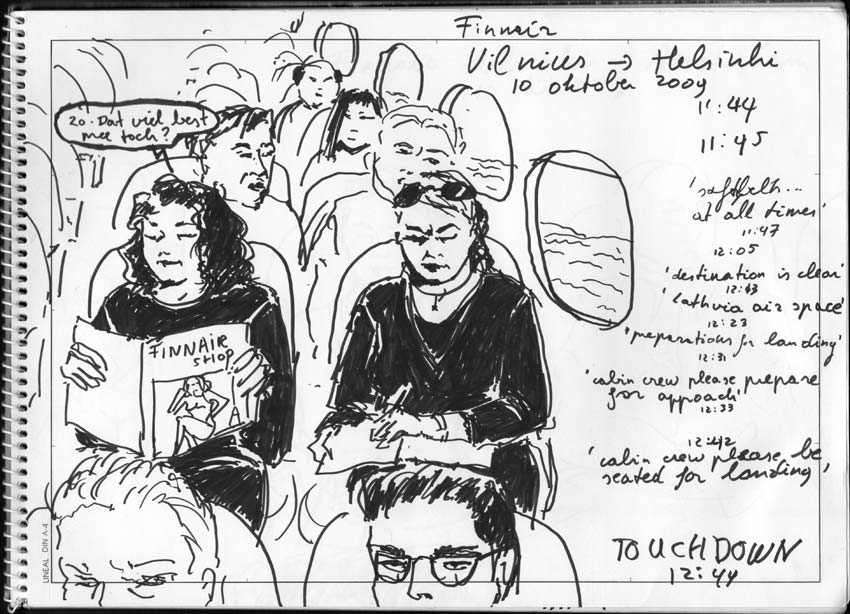 Finnair
Vilnius → Helsinki
10 oktober 2009
11:44
11:45
20. Dat viel best
mee toch?
at all times'
11:47
12:05
'destination is clear'
12:13
'Lathvia air space'
12:23
'preparations for landing'
12:31
'cabin crew please prepare
for approach'
12:33
12:42
'cabin crew please be
seated for landing'
FINNAIR
SHOP
TOUCHDOWN
12:44
LINEAL DIN A-4